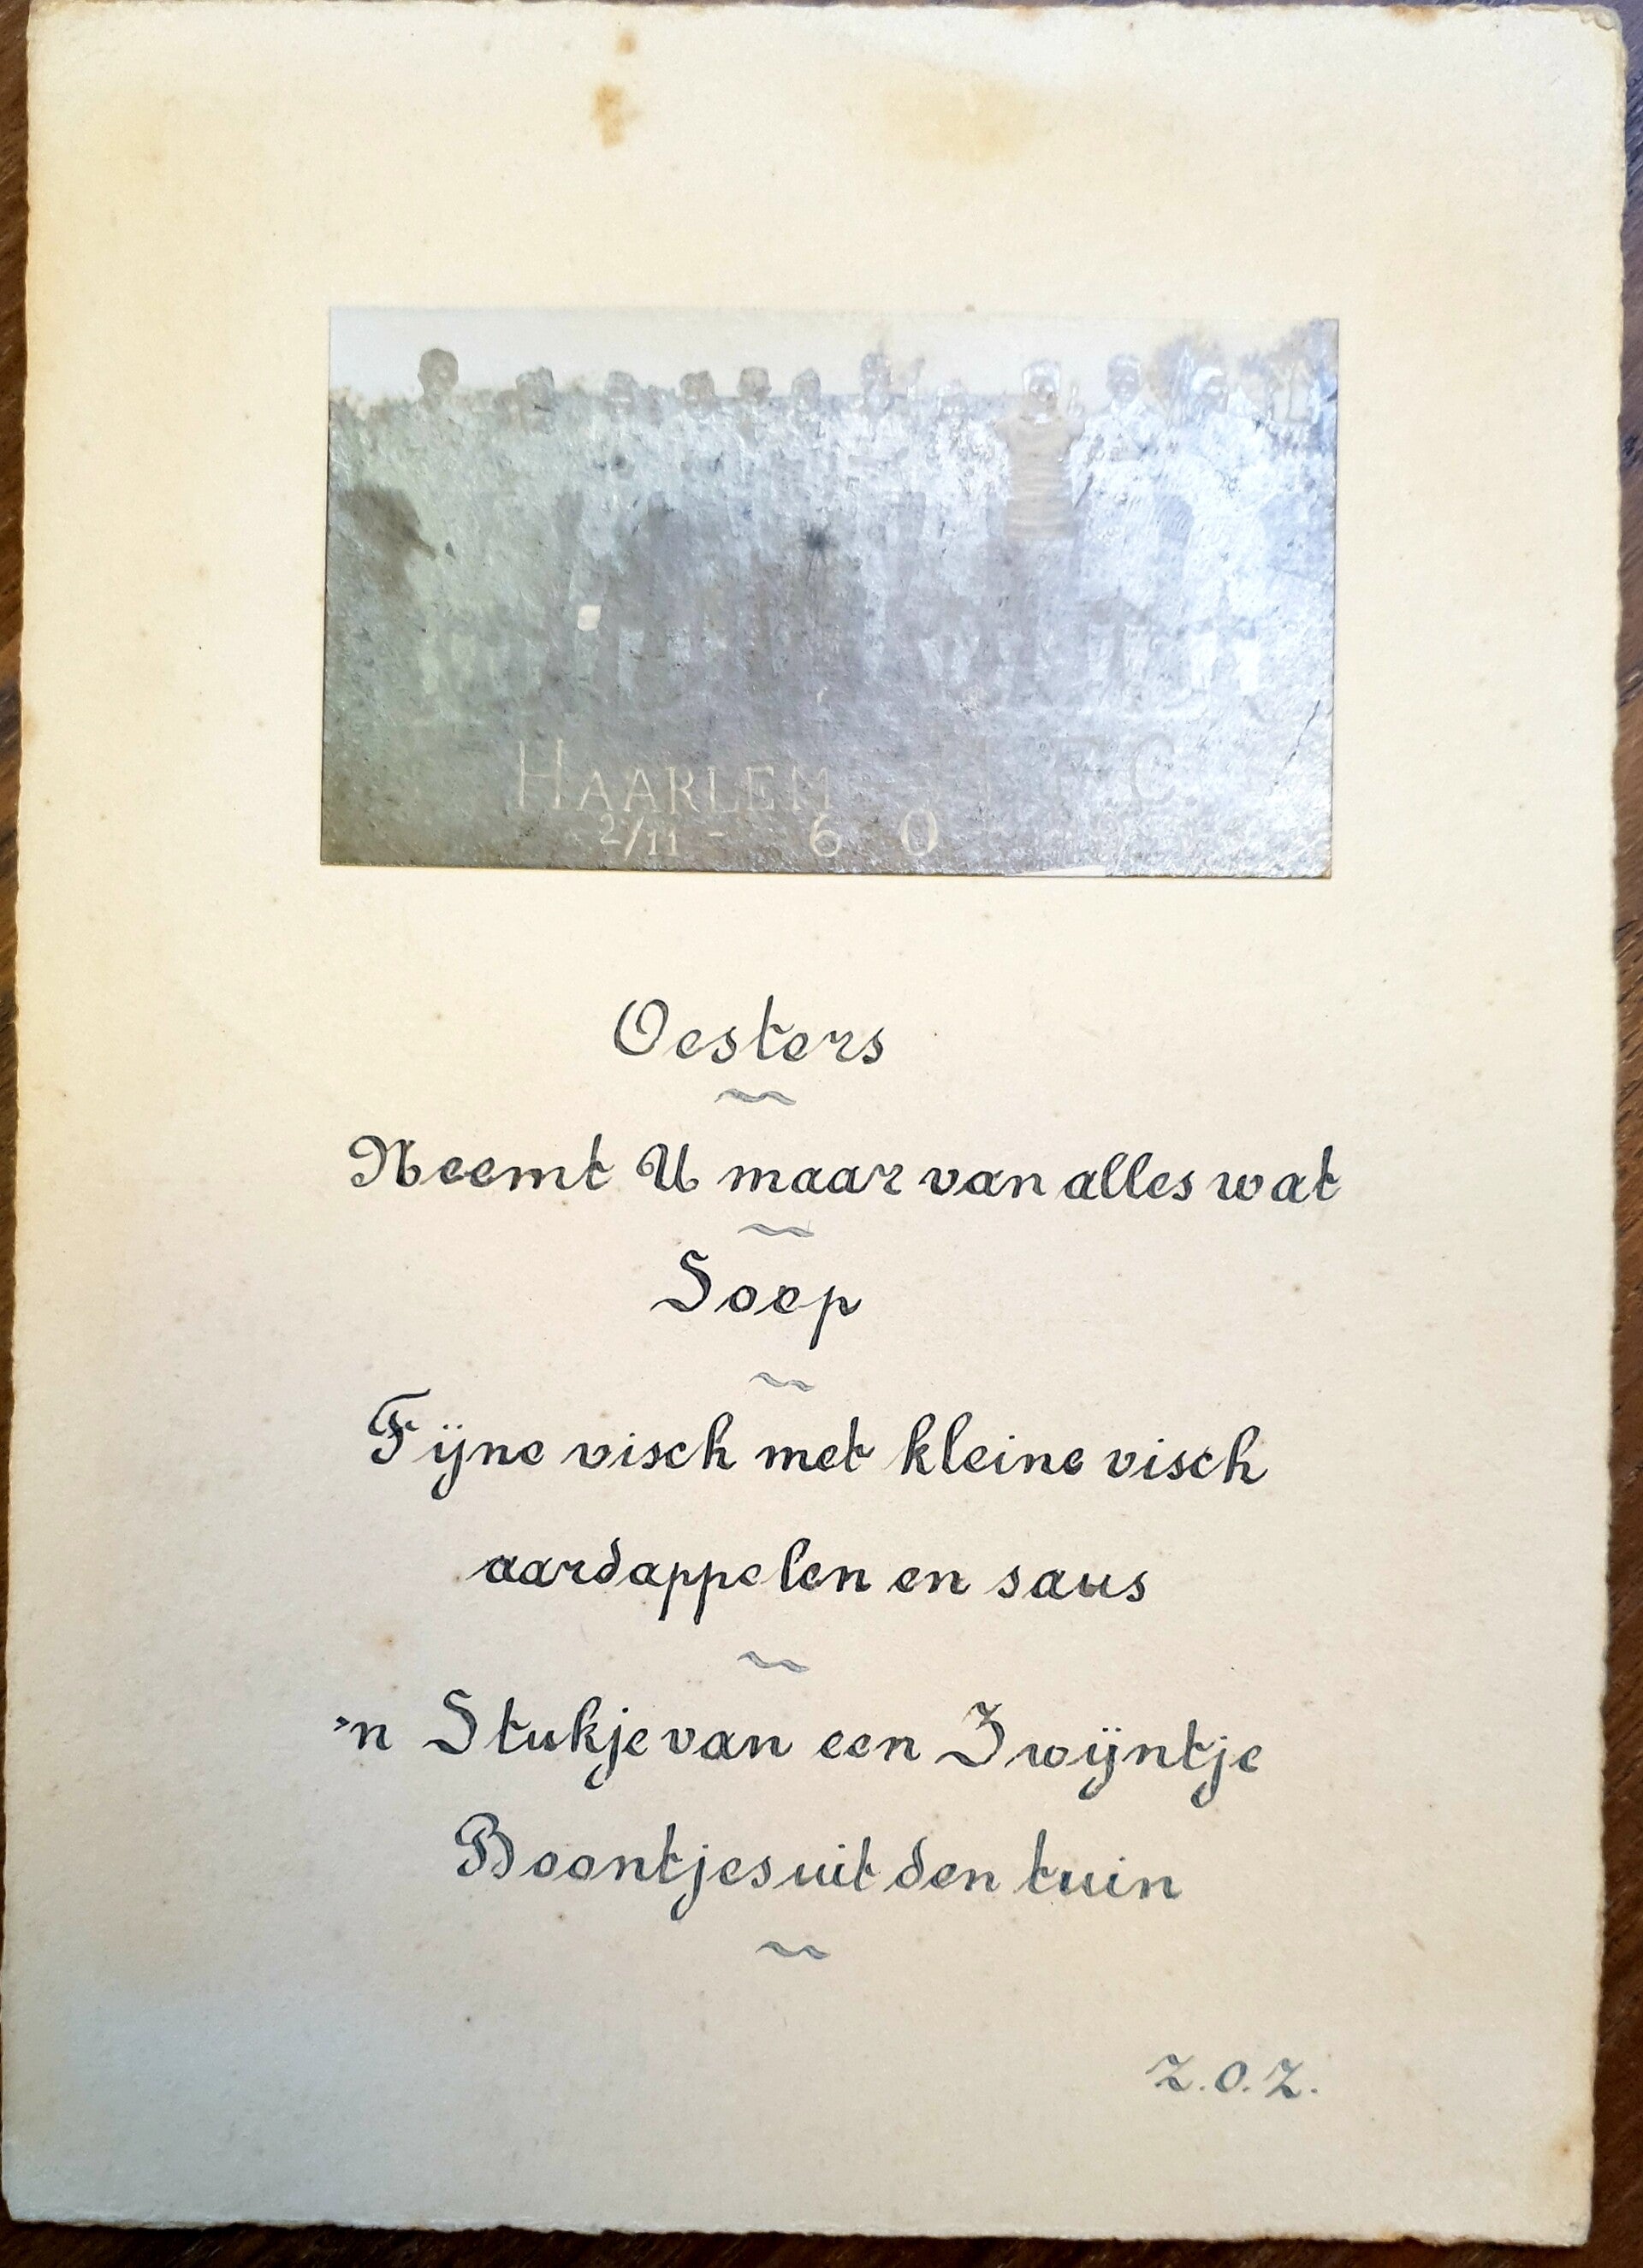 HAARLEM F C
2/11 - 6 0
Oesters
Neemt U maar van alles wat
Soep
Fijne visch met kleine visch
aardappelen en saus
'n Stukje van een Zwijntje
Boontjes uit den tuin
Z.O.Z.